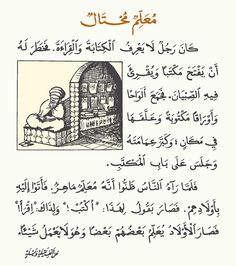 مُعَلِّمٌ مُحْتَالٌ
كَانَ رَجُلٌ لَا يَعْرِفُ الْكِتَابَةَ وَالْقِرَاءَةَ. فَخَطَرَ لَهُ
أَنْ يَفْتَحَ مَكْتَبًا وَيُقْرِئَ
فِيهِ الصِّبْيَانَ. فَجَمَعَ أَلْوَاحًا
وَأَوْرَاقًا مَكْتُوبَةً وَعَلَّقَهَا
فِي مَكَانٍ؛ وَكَبَّرَ عِمَامَتَهُ
وَجَلَسَ عَلَى بَابِ الْمَكْتَبِ.
فَلَمَّا رَآهُ النَّاسُ ظَنُّوا أَنَّهُ مُعَلِّمٌ مَاهِرٌ. فَأَتَوْا إِلَيْهِ
بِأَوْلَادِهِمْ. فَصَارَ يَقُولُ لِهٰذَا: "أُكْتُبْ!" وَلِذَاكَ: "إِقْرَأْ!"
فَصَارَ الْأَوْلَادُ يُعَلِّمُ بَعْضُهُمْ بَعْضًا وَهُوَ لَا يَعْمَلُ شَيْئًا.